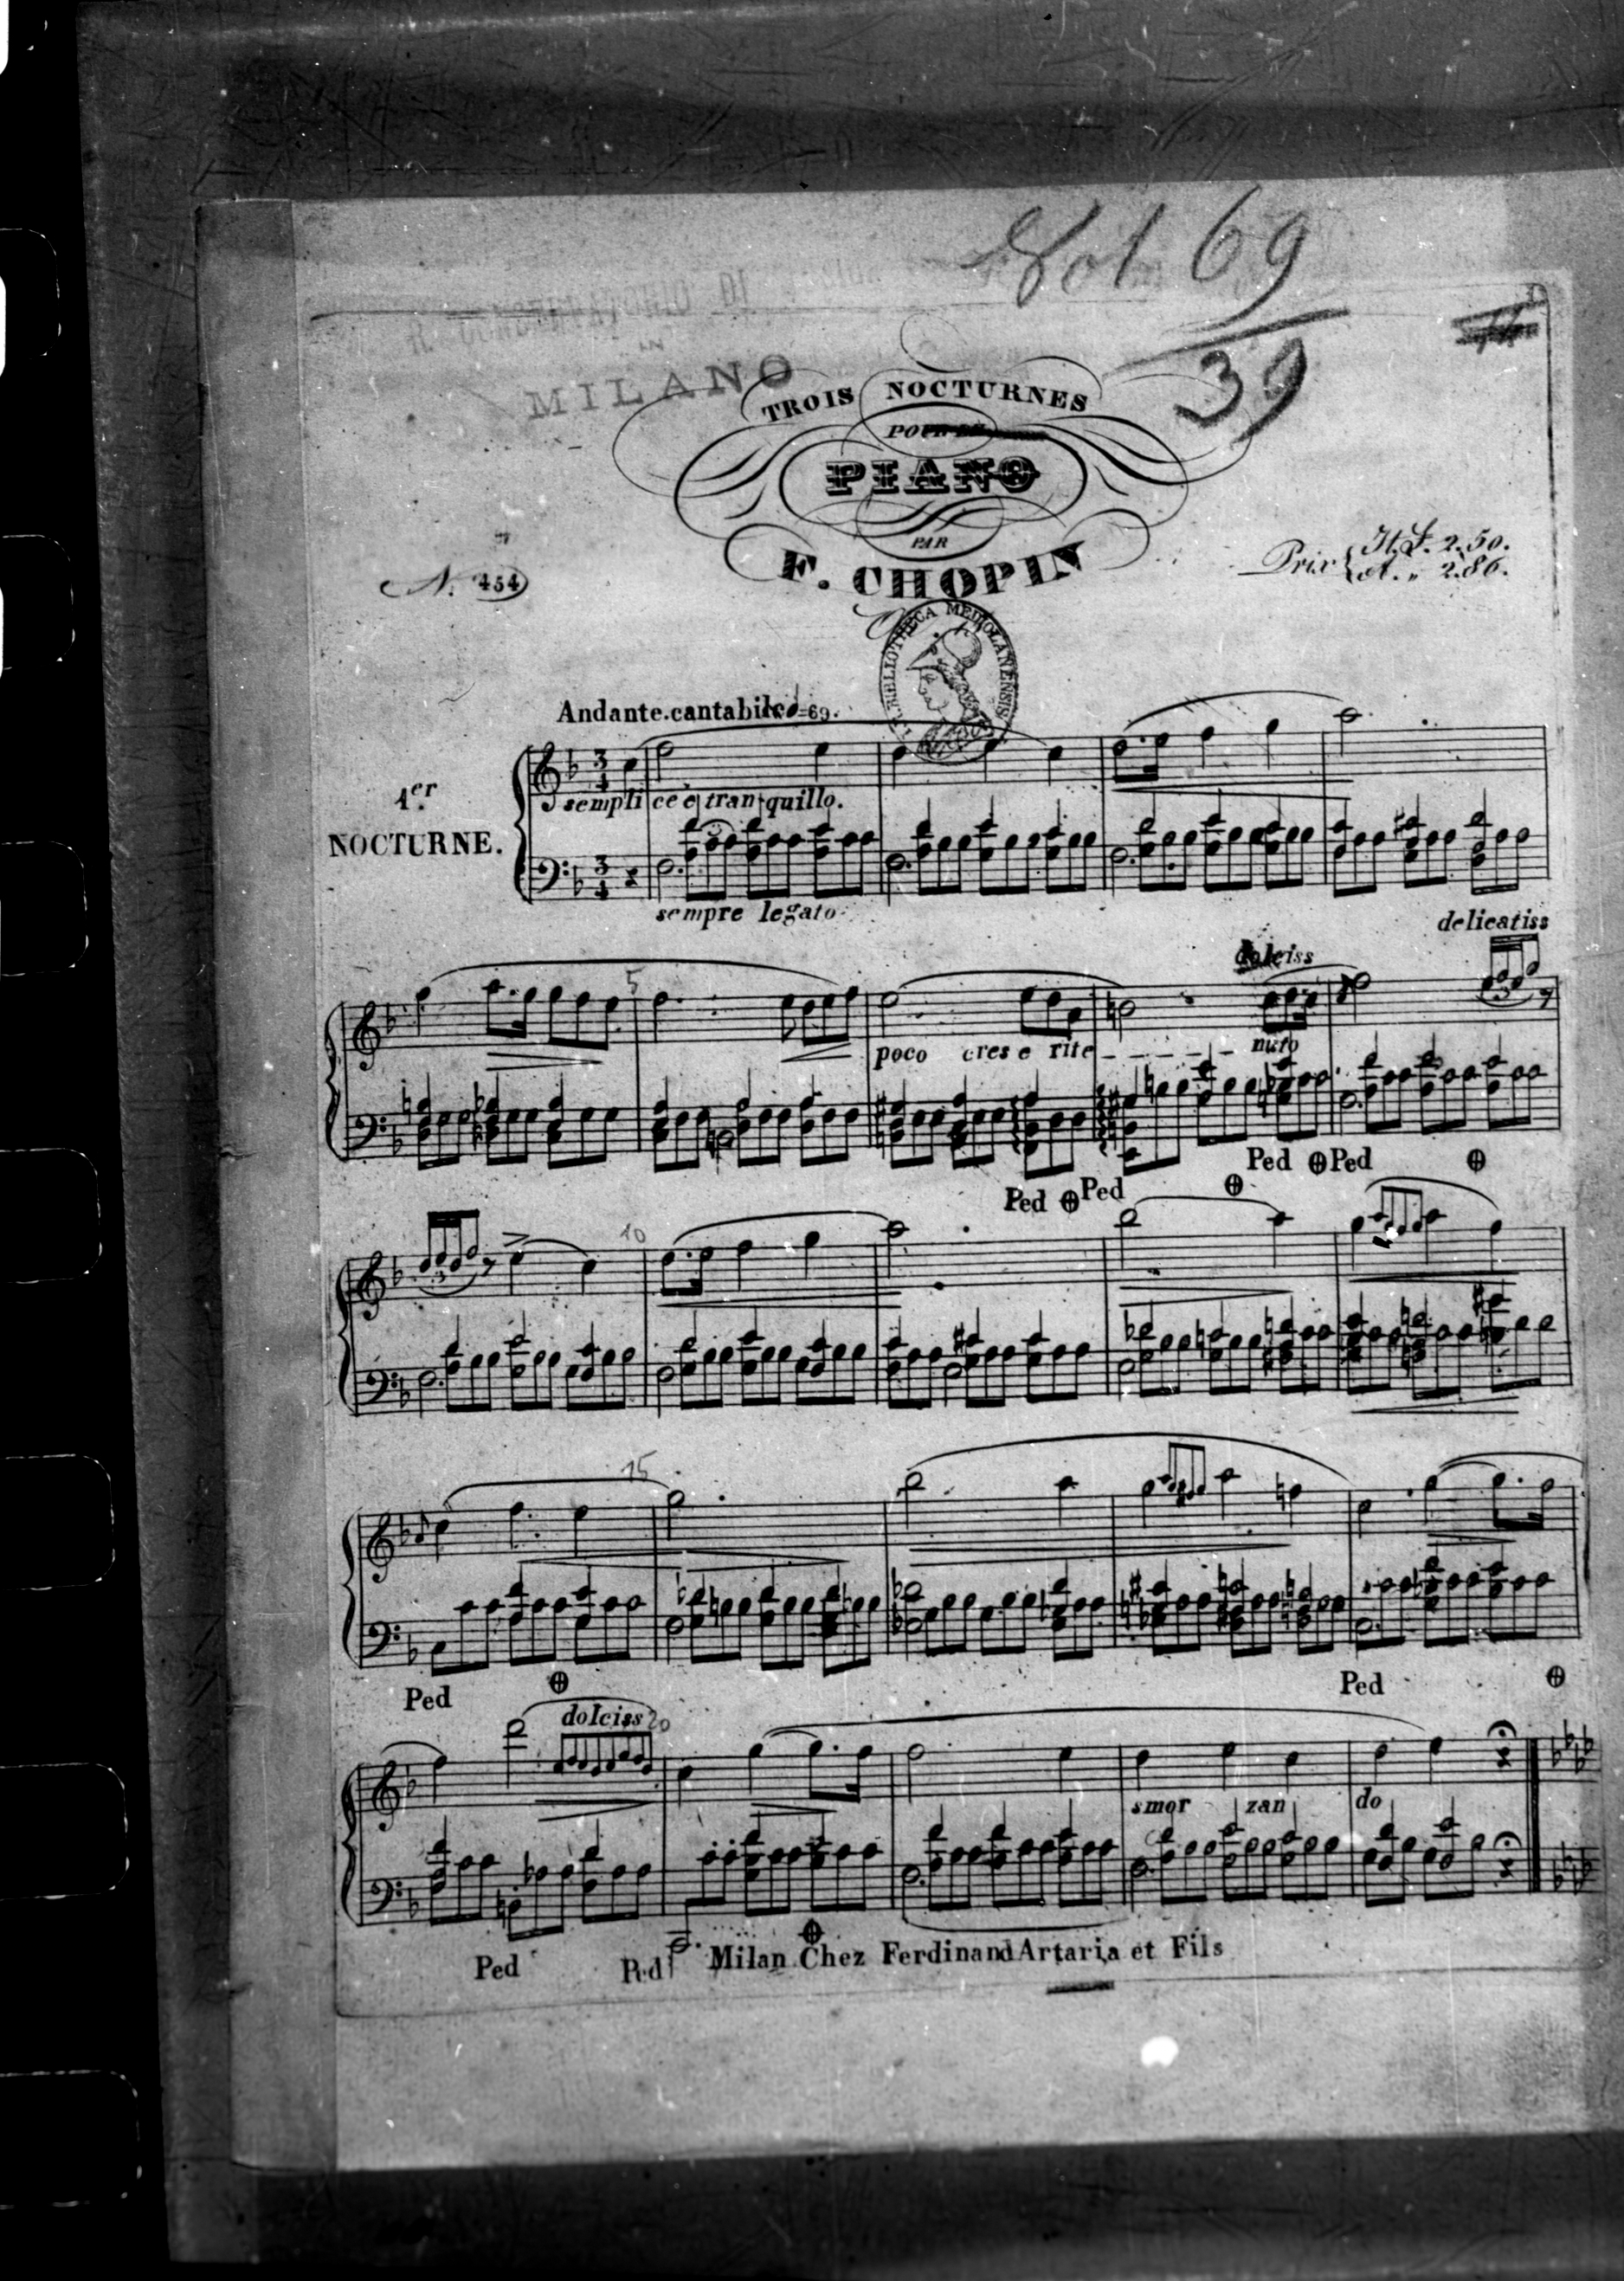 Vol 69
39
R. CONSERVATORIO DI
IN
MILANO
TROIS NOCTURNES
POUR LE
PIANO
PAR
F. CHOPIN
N. 454
Prix { It. L. 2.50.
A. „ 2.86.
I.R. BIBLIOTHECA MEDIOLANENSIS
Andante.cantabile. =69.
1er
NOCTURNE.
semplice e tranquillo.
sempre legato
delicatiss
5
dolciss
poco cres e rite _ _ _ _ _ nuto
Ped Ped
Ped Ped
10
15
Ped Ped
dolciss 20
smor zan do
Ped Ped
Milan Chez Ferdinand Artaria et Fils